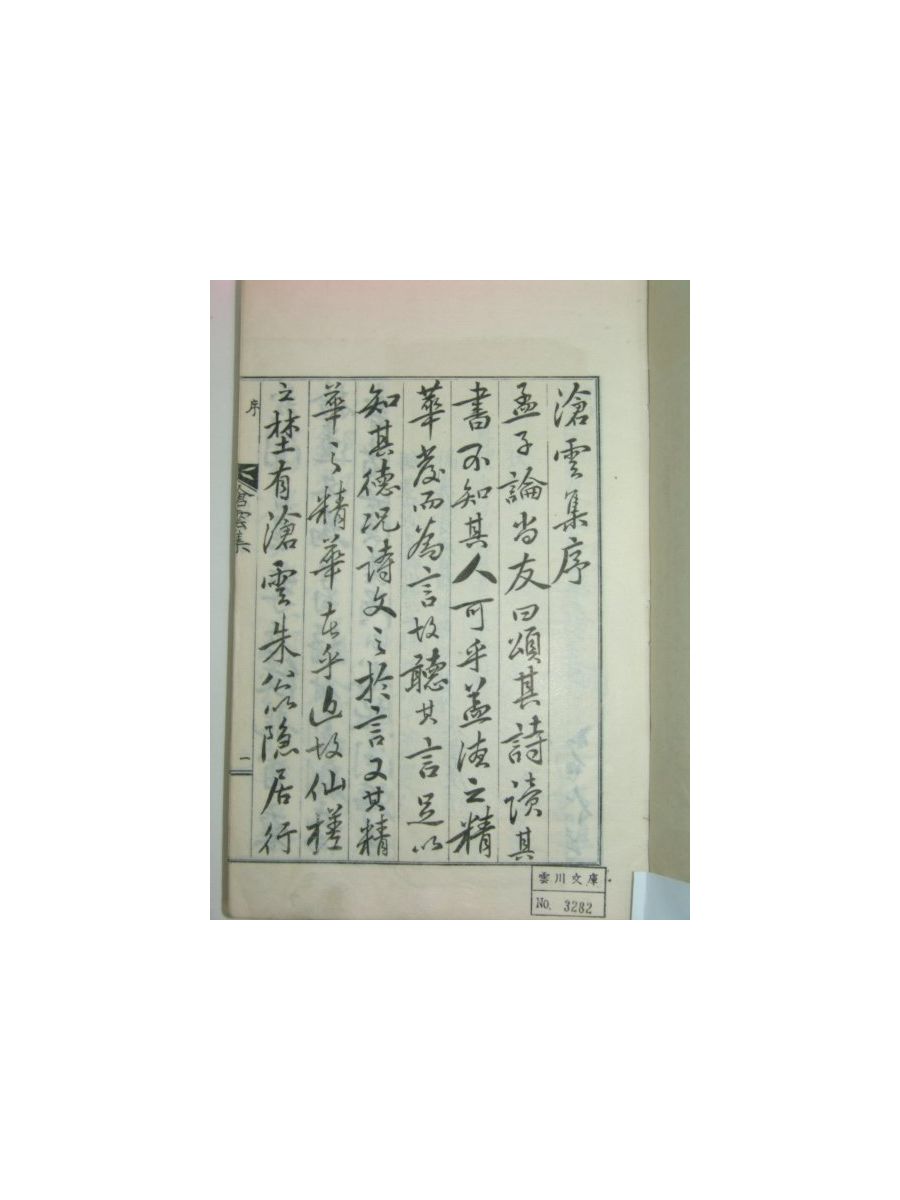 滄雲集序
孟子論尚友曰頌其詩讀其
書不知其人可乎盖德之精
華發而為言故聽其言足以
知其德况詩文之於言又其精
華之精華者乎近故仙槎
之埜有滄雲朱公以隱居行
序
滄雲集
一
雲川文庫
No. 3282